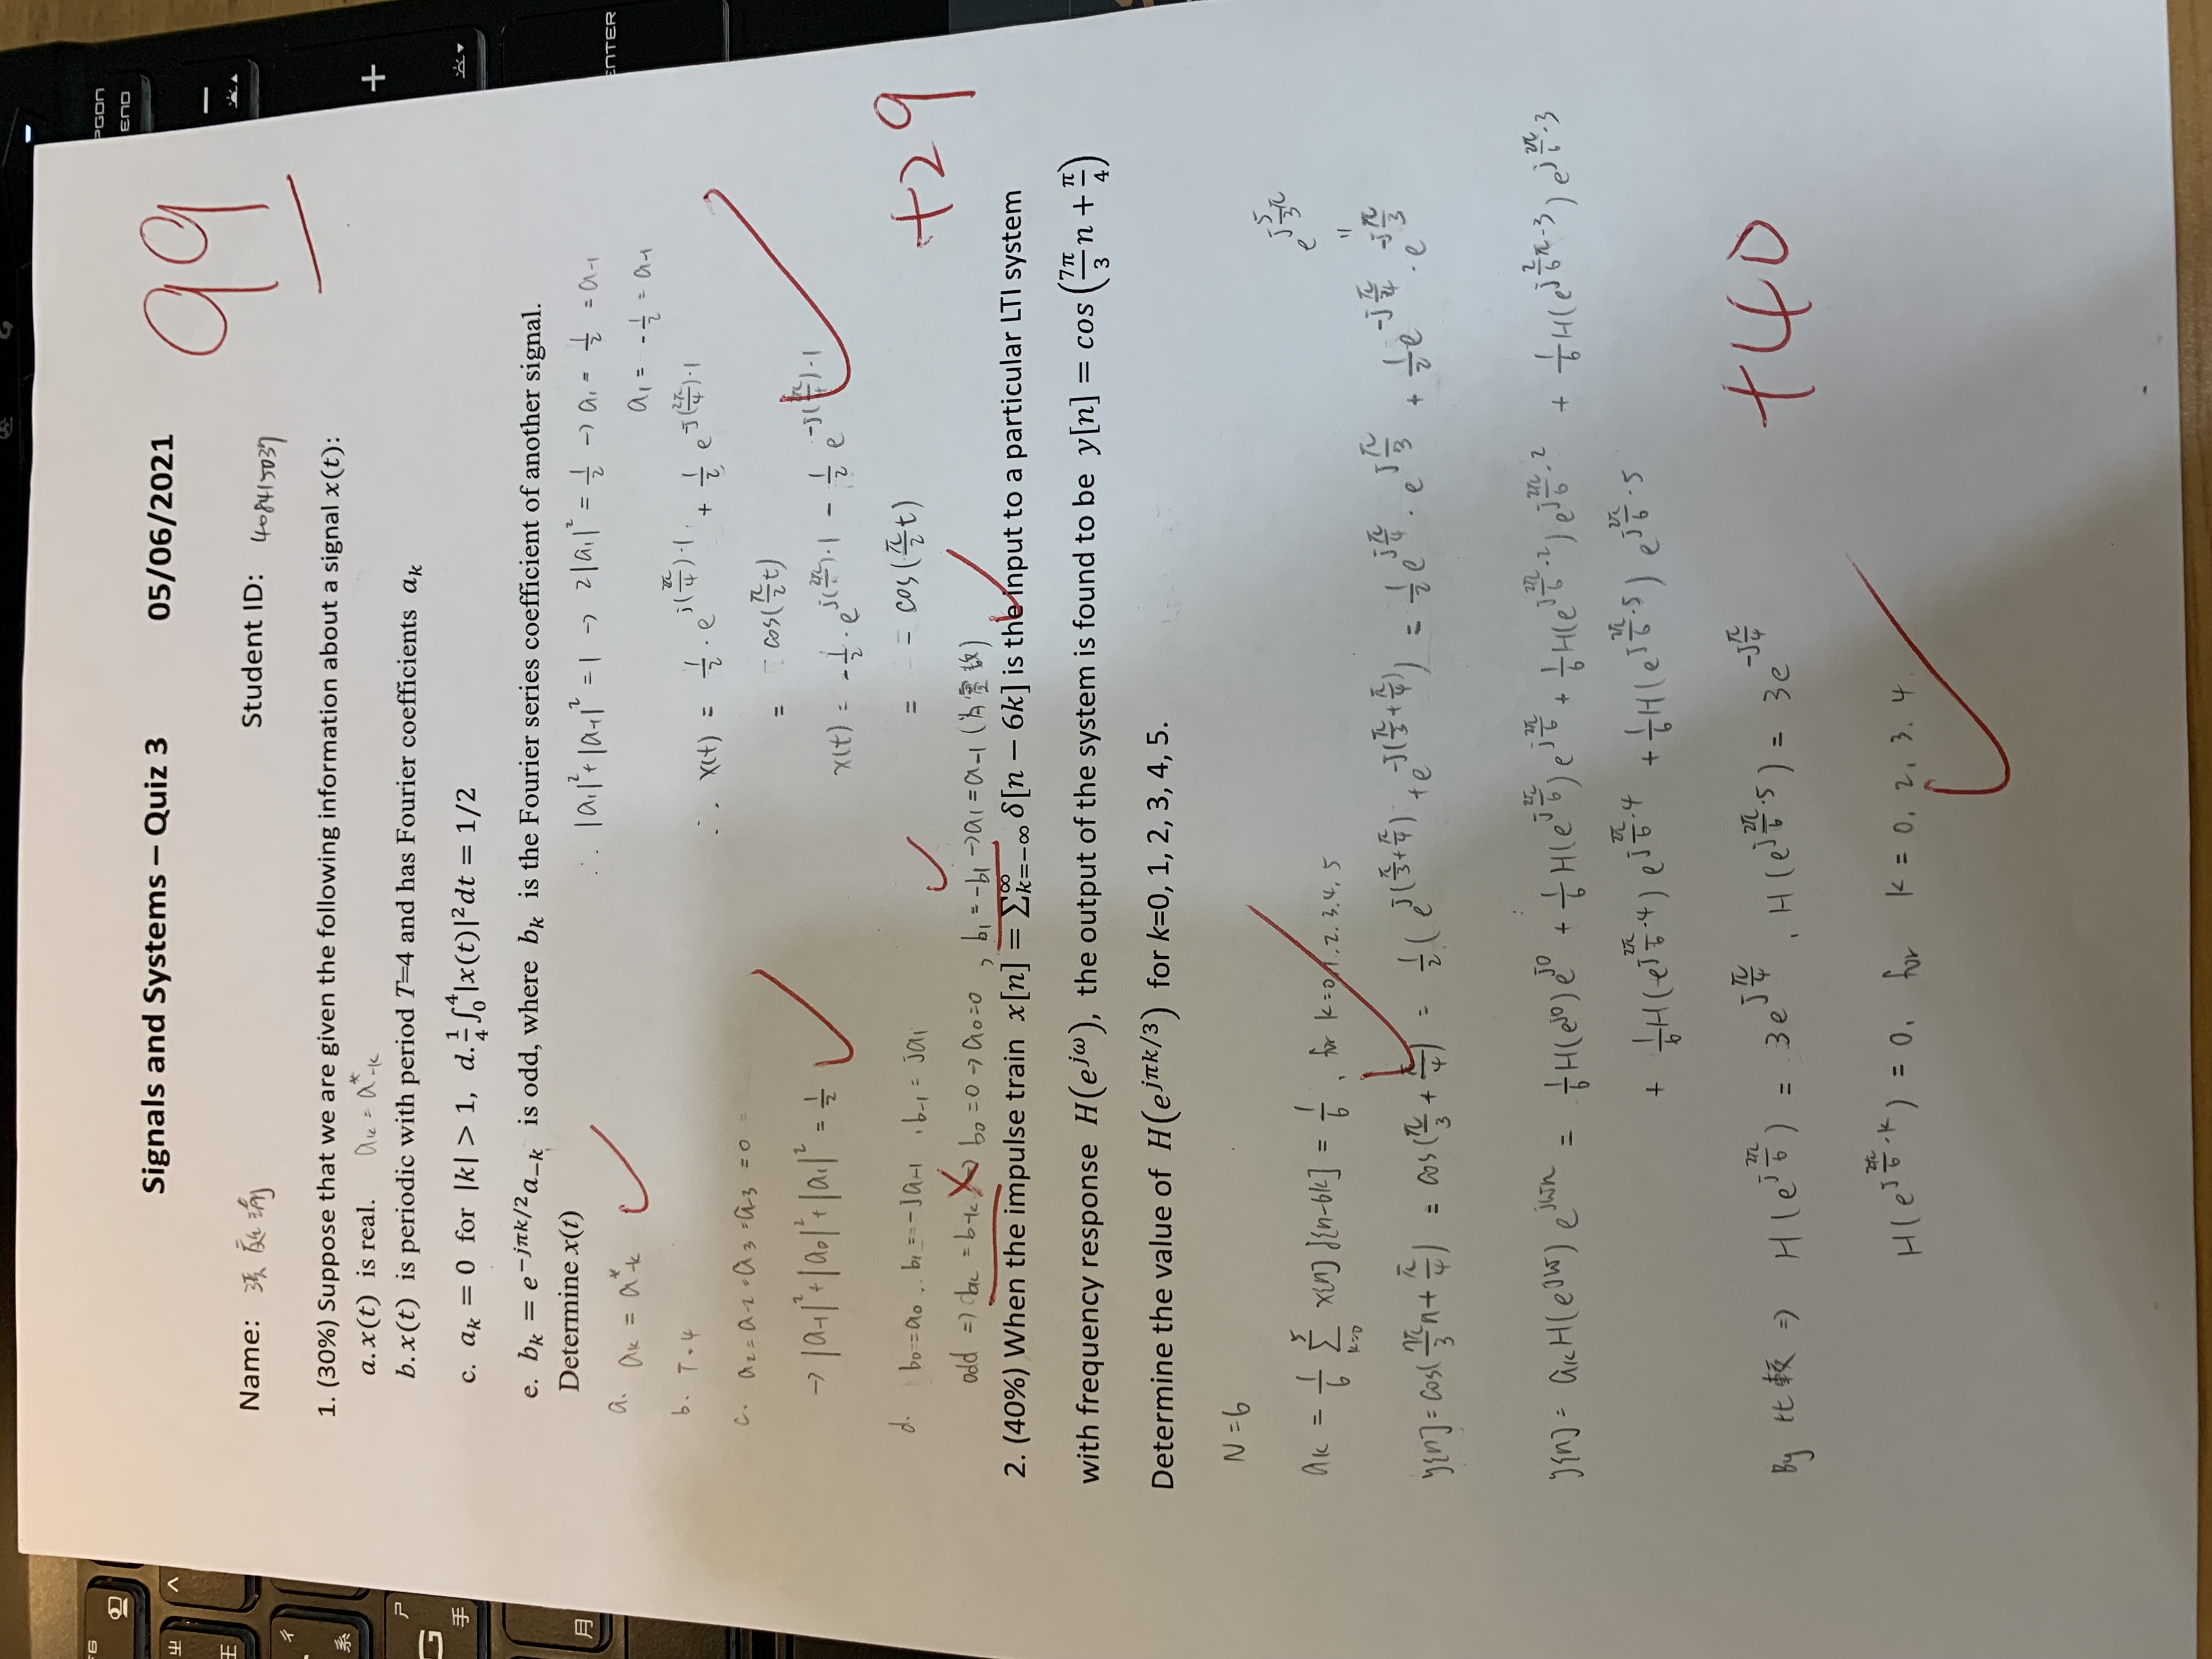 Signals and Systems – Quiz 3 05/06/2021
99
Name: 張庭瑜 Student ID: 408415037
1. (30%) Suppose that we are given the following information about a signal x(t):
a. x(t) is real. aₖ = a*₋ₖ
b. x(t) is periodic with period T=4 and has Fourier coefficients aₖ
c. aₖ = 0 for |k| > 1, d. 1/4 ∫₀⁴|x(t)|²dt = 1/2
e. bₖ = e^(-jπk/2)a₋ₖ is odd, where bₖ is the Fourier series coefficient of another signal.
Determine x(t)
a. aₖ = a*₋ₖ
b. T=4
c. a₂=a₋₂=a₃=a₋₃=0
→ |a₋₁|²+|a₀|²+|a₁|² = 1/2
d. b₀=a₀, b₁=-ja₋₁, b₋₁=ja₁
odd ⇒ bₖ = b₋ₖ ⇒ b₀=0 → a₀=0, b₁=-b₁ → a₁=a₋₁ (為實數)
∴ |a₁|²+|a₋₁|² = 1 → 2|a₁|² = 1/2 → a₁ = 1/2 = a₋₁
a₁ = -1/2 = a₋₁
∴ x(t) = 1/2 · e^(j(2π/4)·1) + 1/2 e^(-j(2π/4)·1)
= cos(π/2 t)
x(t) = -1/2 · e^(j(2π/4)·1) - 1/2 e^(-j(2π/4)·1)
= - cos(π/2 t)
+29
2. (40%) When the impulse train x[n] = ∑_(k=-∞)^∞ δ[n − 6k] is the input to a particular LTI system
with frequency response H(e^(jω)), the output of the system is found to be y[n] = cos(7π/3 n + π/4)
Determine the value of H(e^(jπk/3)) for k=0, 1, 2, 3, 4, 5.
N=6
aₖ = 1/6 ∑_(k=0)^5 x[n] δ[n-6k] = 1/6, for k=0,1,2,3,4,5
e^(j5/3π)
=
y[n]=cos(7π/3 n+π/4) = cos(π/3+π/4) = 1/2(e^(j(π/3+π/4))+e^(-j(π/3+π/4))) = 1/2 e^(jπ/4) · e^(jπ/3) + 1/2 e^(-jπ/4) · e^(-jπ/3)
y[n] = aₖH(e^(jω)) e^(jωn) = 1/6 H(e^(j0)) e^(j0) + 1/6 H(e^(j2π/6)) e^(j2π/6) + 1/6 H(e^(j2π/6·2)) e^(j2π/6·2) + 1/6 H(e^(j2/6π·3)) e^(j2π/6·3)
+ 1/6 H(e^(j2π/6·4)) e^(j2π/6·4) + 1/6 H(e^(j2π/6·5)) e^(j2π/6·5)
By 比較 ⇒ H(e^(j2π/6)) = 3e^(jπ/4), H(e^(j2π/6·5)) = 3e^(-jπ/4)
+40
H(e^(j2π/6·k)) = 0, for k = 0, 2, 3, 4
PGDN
END
ENTER
F6
G
手
月
系
王